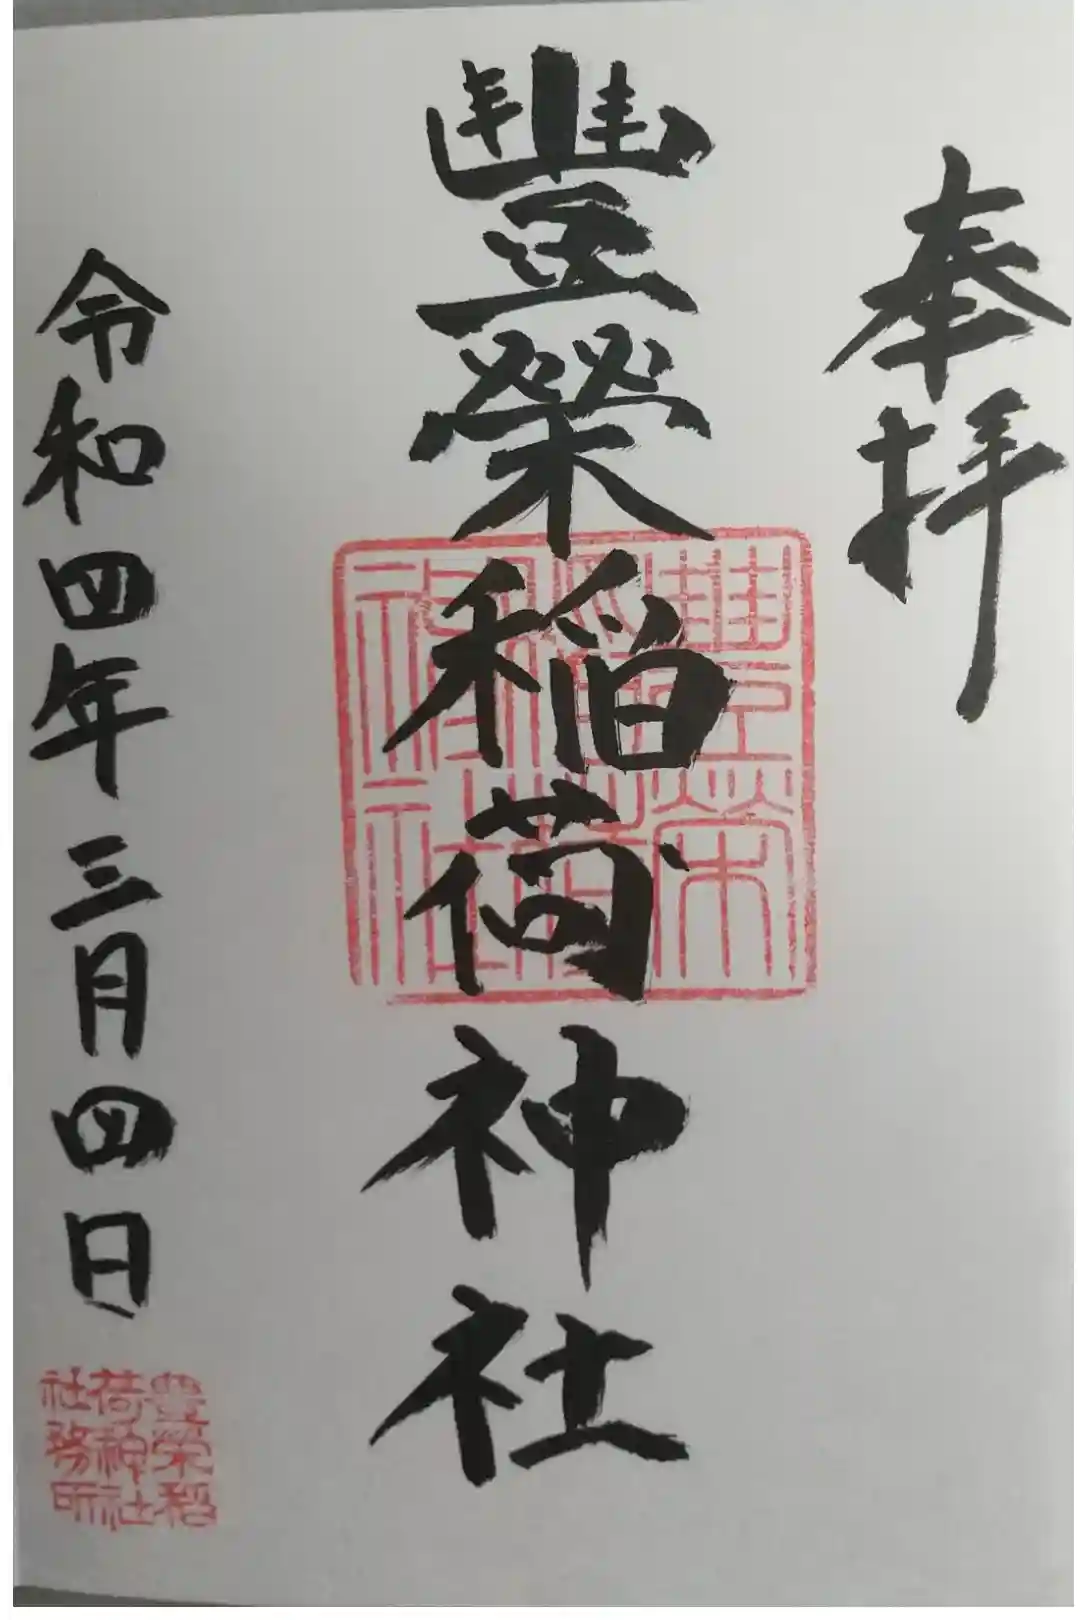 奉拝
豐榮稲荷神社
豊榮
稲荷
神社
令和四年三月四日
豊榮稲
荷神社
社務所